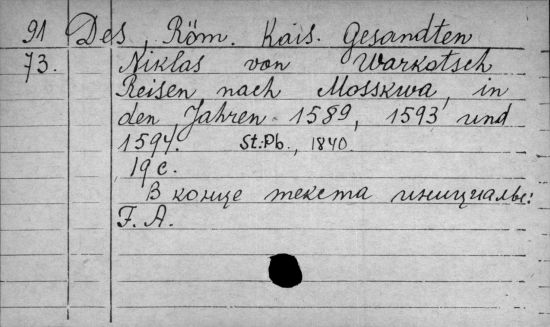 91 Des Röm. Kais. Gesandten
73. Niklas von Warkotsch
Reisen nach Mosskwa, in
den Jahren 1589, 1593 und
1594. St:Pb., 1840.
19 с.
В конце текста инициалы:
F. A.